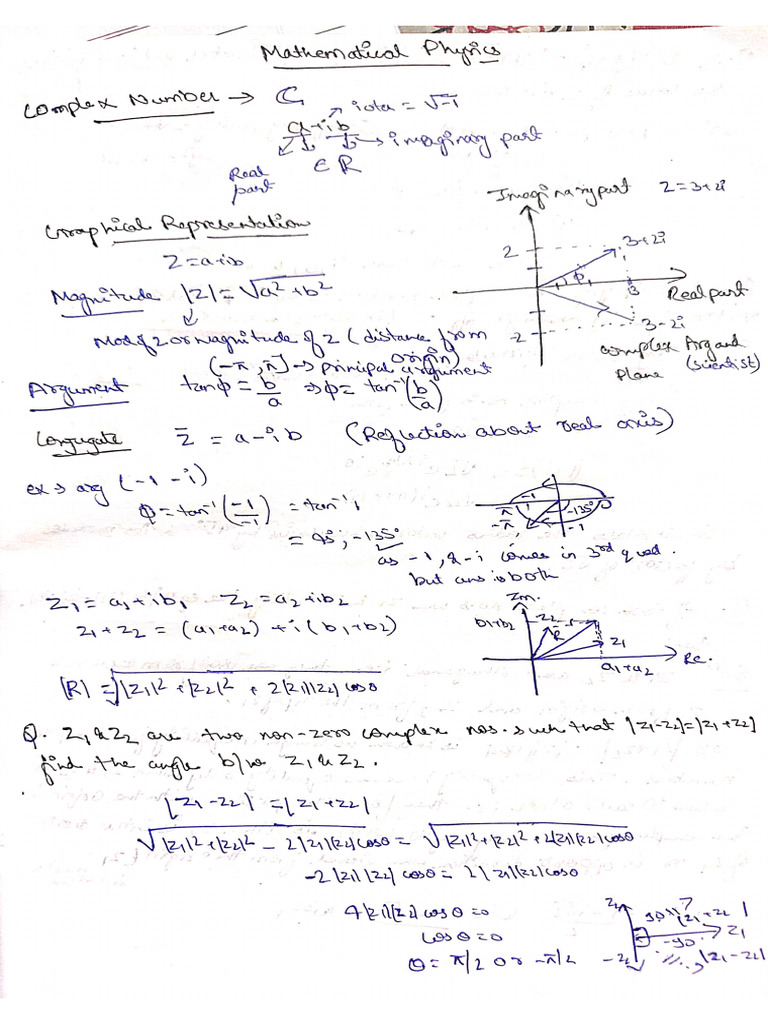 Mathematical Physics
Complex Number → ℂ
iota = √-1
a+ib
→ imaginary part
Real part
∈ R
Graphical Representation
Z = a+ib
Magnitude |Z| = √a² + b²
Mod of Z or Magnitude of Z (distance from origin)
(-π, π] → principal argument
Argument tanφ = b/a ⇒ φ = tan⁻¹(b/a)
Imaginary part Z = 3+2i
2
3+2i
φ
3
Real part
-2
3-2i
Complex Argand Plane (scientist)
Conjugate Z̄ = a-ib (Reflection about real axis)
ex → arg (-1-i)
φ = tan⁻¹(-1/-1) = tan⁻¹ 1
= 45°, -135°
as -1, & -i comes in 3rd quad.
but ans is both
-1
π
-π
-135°
-1
Z₁ = a₁+ib₁ Z₂ = a₂+ib₂
Z₁+Z₂ = (a₁+a₂) + i(b₁+b₂)
|R| = √|Z₁|² + |Z₂|² + 2|Z₁||Z₂|cosθ
Im.
b₁+b₂
Z₂
R
Z₁
a₁+a₂
Re.
Q. Z₁ & Z₂ are two non-zero complex nos. such that |Z₁-Z₂|=|Z₁+Z₂|
find the angle b/w Z₁ & Z₂.
|Z₁-Z₂| = |Z₁+Z₂|
√|Z₁|²+|Z₂|² - 2|Z₁||Z₂|cosθ = √|Z₁|²+|Z₂|²+2|Z₁||Z₂|cosθ
-2|Z₁||Z₂|cosθ = 2|Z₁||Z₂|cosθ
4|Z₁||Z₂|cosθ = 0
cosθ = 0
θ = π/2 or -π/2
Z₂
90
|Z₁+Z₂|
Z₁
-90
-Z₂
|Z₁-Z₂|